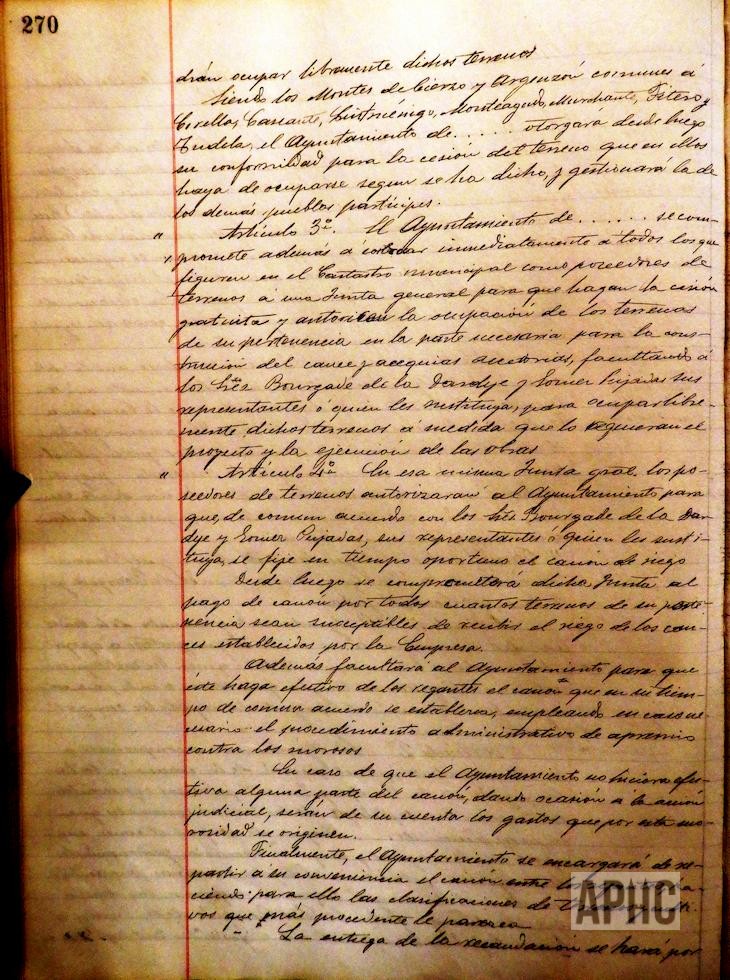 270
drán ocupar libremente dichos terrenos
Siendo los Montes de Cierzo y Argenzón comunes á
Corella, Cascante, Cintruénigo, Monteagudo, Murchante, Fitero y
Tudela, el Ayuntamiento de ...... otorgará desde luego
su conformidad para la cesión del terreno que en ellos
haya de ocuparse segun se ha dicho, y gestionará la de
los demás pueblos partícipes.
" Artículo 3º. El Ayuntamiento de ...... se com-
promete además á inmediatamente á todos los que
figuren en el Catastro municipal como poseedores de
terrenos á una Junta general para que hagan la cesión
gratuita y autoricen la ocupación de los terrenos
de su pertenencia en la parte necesaria para la cons-
trucción del cauce y acequias accesorias, facultando á
los Sres. Bourgade de la Dardye y Somer Pijadas sus
representantes ó quien les sustituya, para ocupar libre-
mente dichos terrenos á medida que lo requieran el
proyecto y la ejecución de las obras
" Artículo 4º En esa misma Junta gral. los po-
seedores de terrenos autorizaran al Ayuntamiento para
que, de comun acuerdo con los Sres. Bourgade de la Dar-
dye y Somer Pijadas, sus representantes ó quien les susti-
tuya, se fije en tiempo oportuno el canon de riego
Desde luego se comprometerá dicha Junta al
pago de canón por todos cuantos terrenos de su perte-
nencia sean suceptibles de recibir el riego de los cau-
ces establecidos por la Empresa.
Además facultará al Ayuntamiento para que
éste haga efectivo de los regantes el canón que en su tiem-
po de comun acuerdo se establezca, empleando en caso ne-
cesario el procedimiento administrativo de apremio
contra los morosos
En caso de que el Ayuntamiento no hiciera efec-
tiva alguna parte del canón, dando ocasión á la acción
judicial, serán de su cuenta los gastos que por esta mo-
rosidad se originen.
Finalmente, el Ayuntamiento se encargará de re-
partir á su conveniencia el canón entre
ciendo para ello las clasificaciones de
vos que más procedente le parezca
La entrega de la recaudación se hará por
APHC